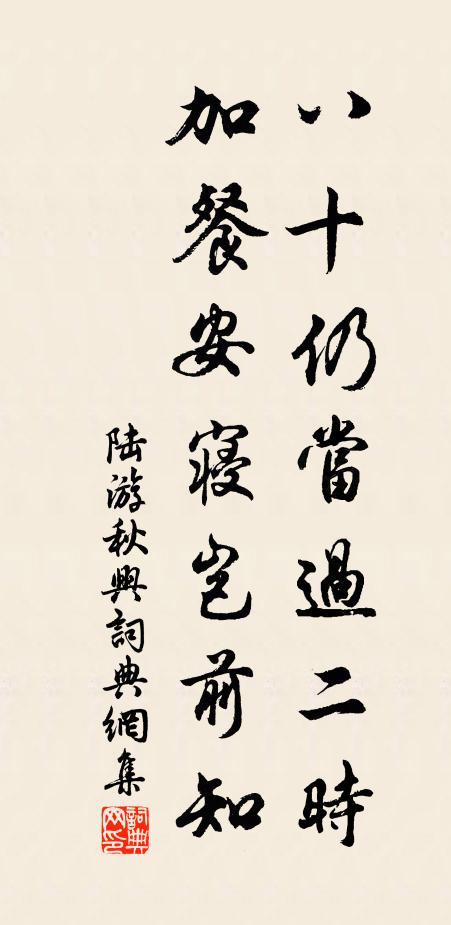 八十仍當過二時
加餐安寢豈前知
陸游秋興詞典網集
詞典网印